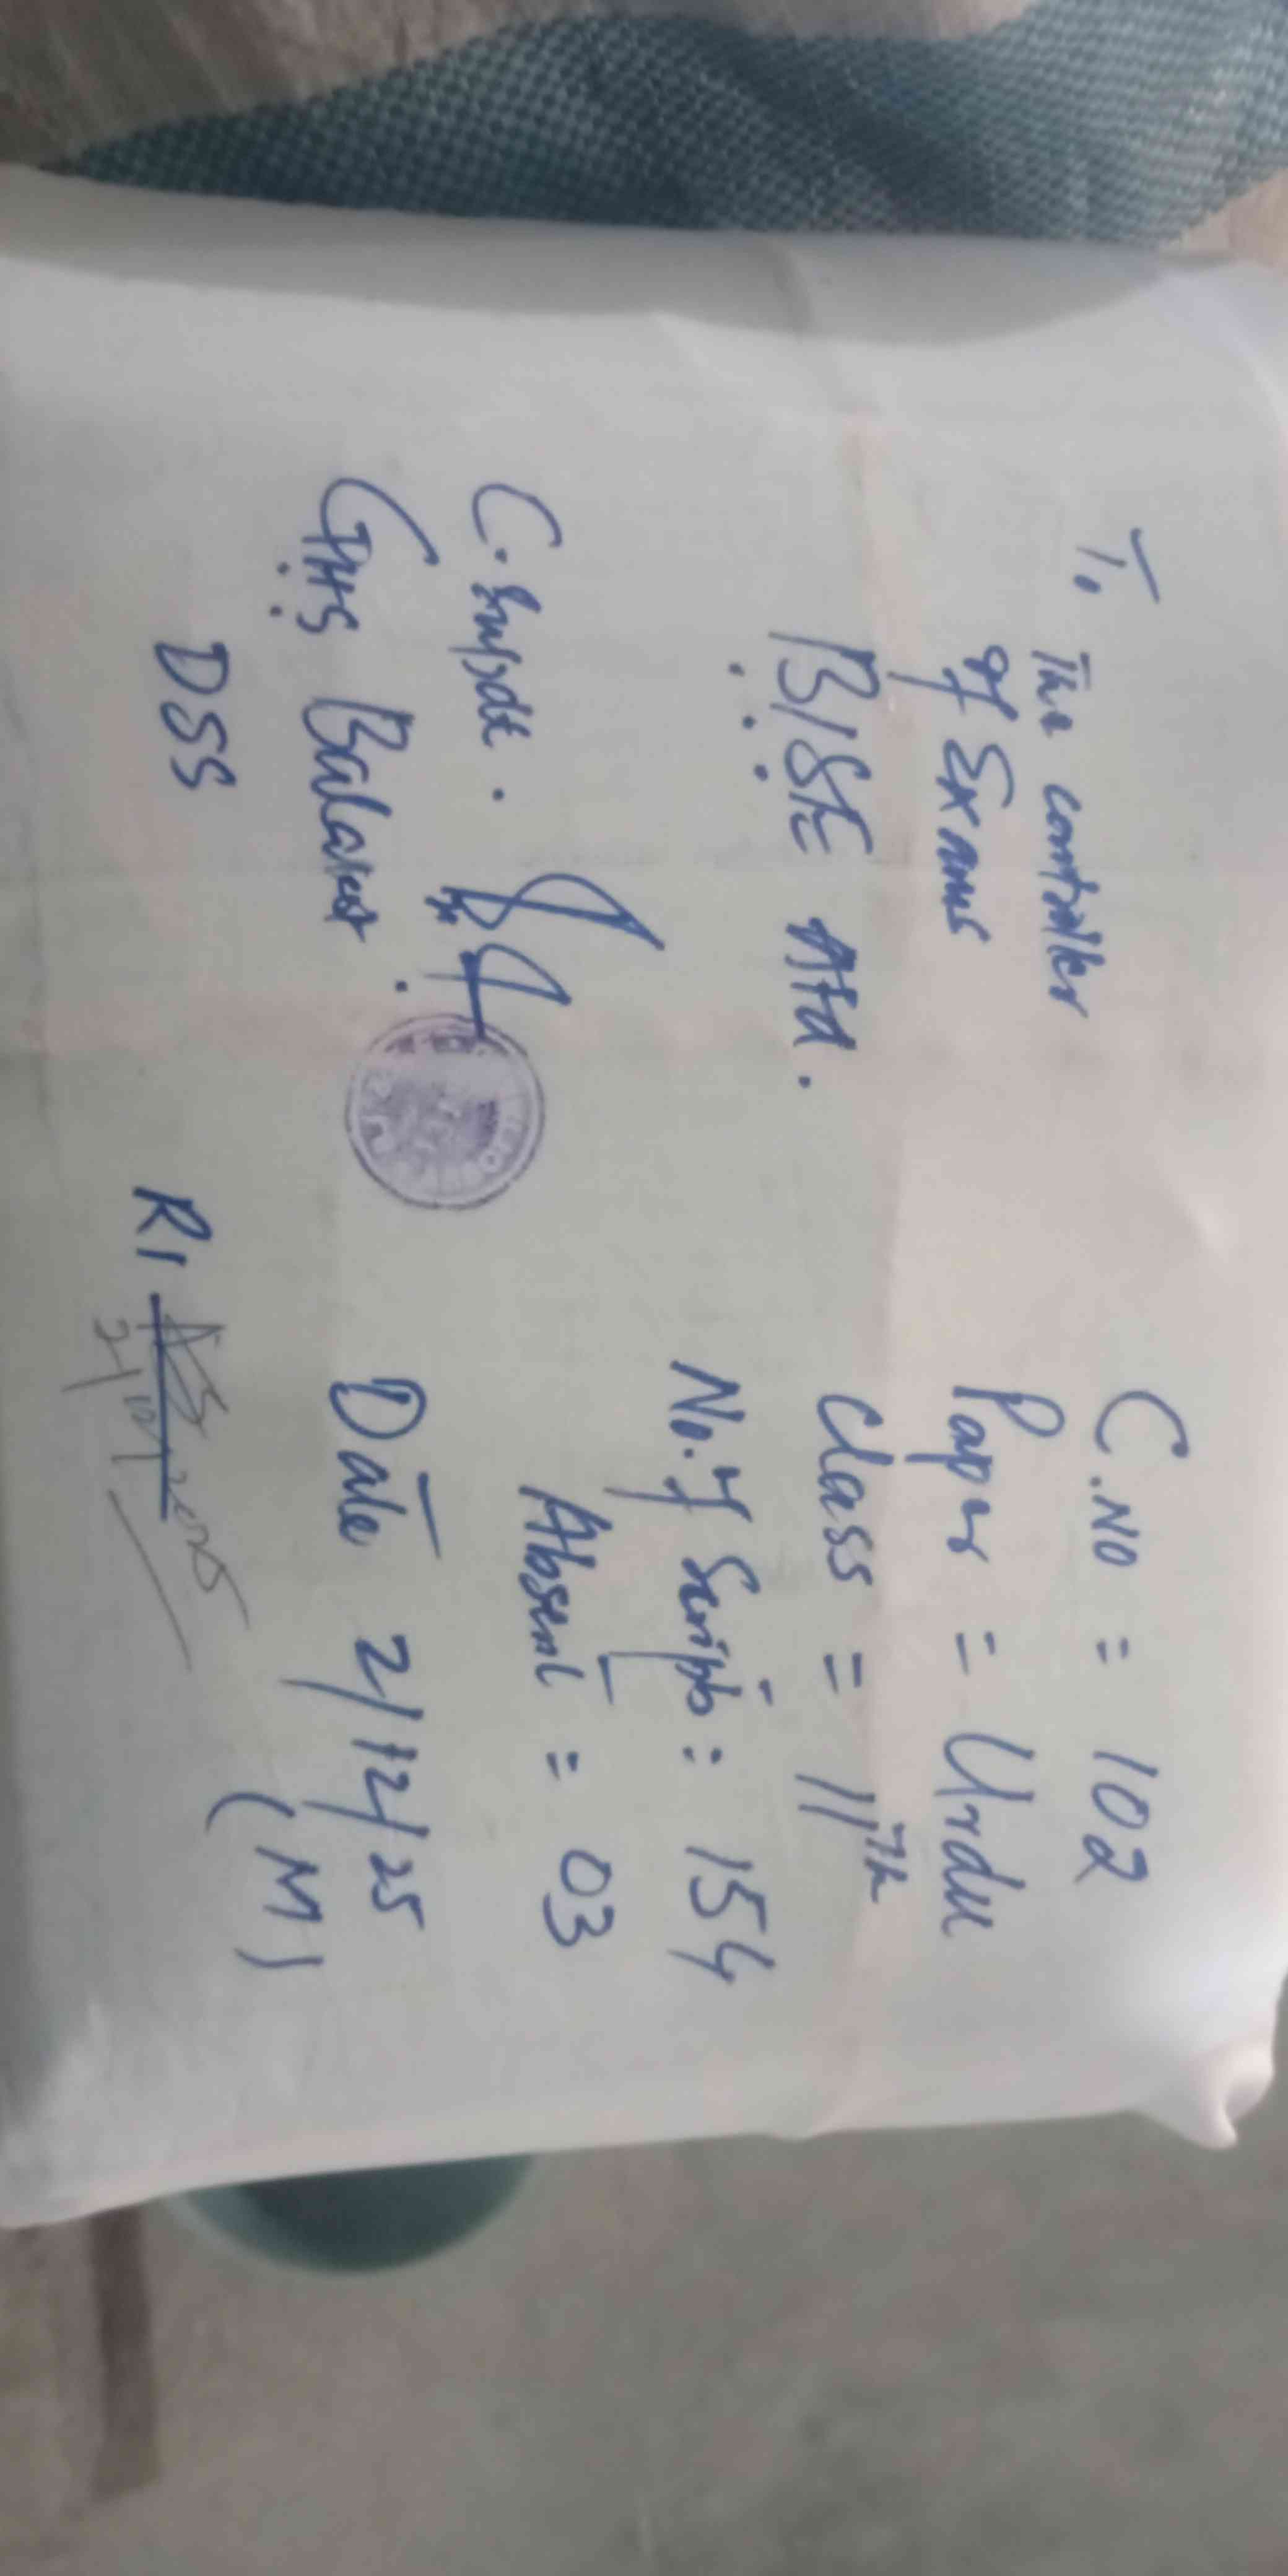 To The controller
of Exams
B/SE Atd.
C. Supdt.
GHS Balakot
DSS
C.No = 102
Paper = Urdu
Class = 11th
No. of Scripts = 154
Absent = 03
Date 2/12/25
(M)
RI